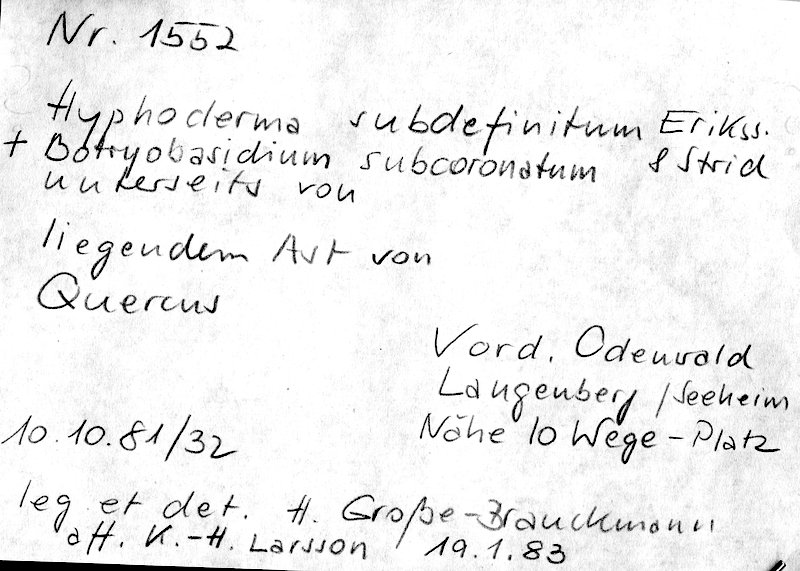 Nr. 1552
Hyphoderma subdefinitum Erikss.
+ Botryobasidium subcoronatum & Strid
unterseits von
liegendem Ast von
Quercus
Vord. Odenwald
Langenberg / Seeheim
Nähe 10 Wege-Platz
10.10.81/32
leg et det. H. Große-Brauckmann
aff. K.-H. Larsson 19.1.83